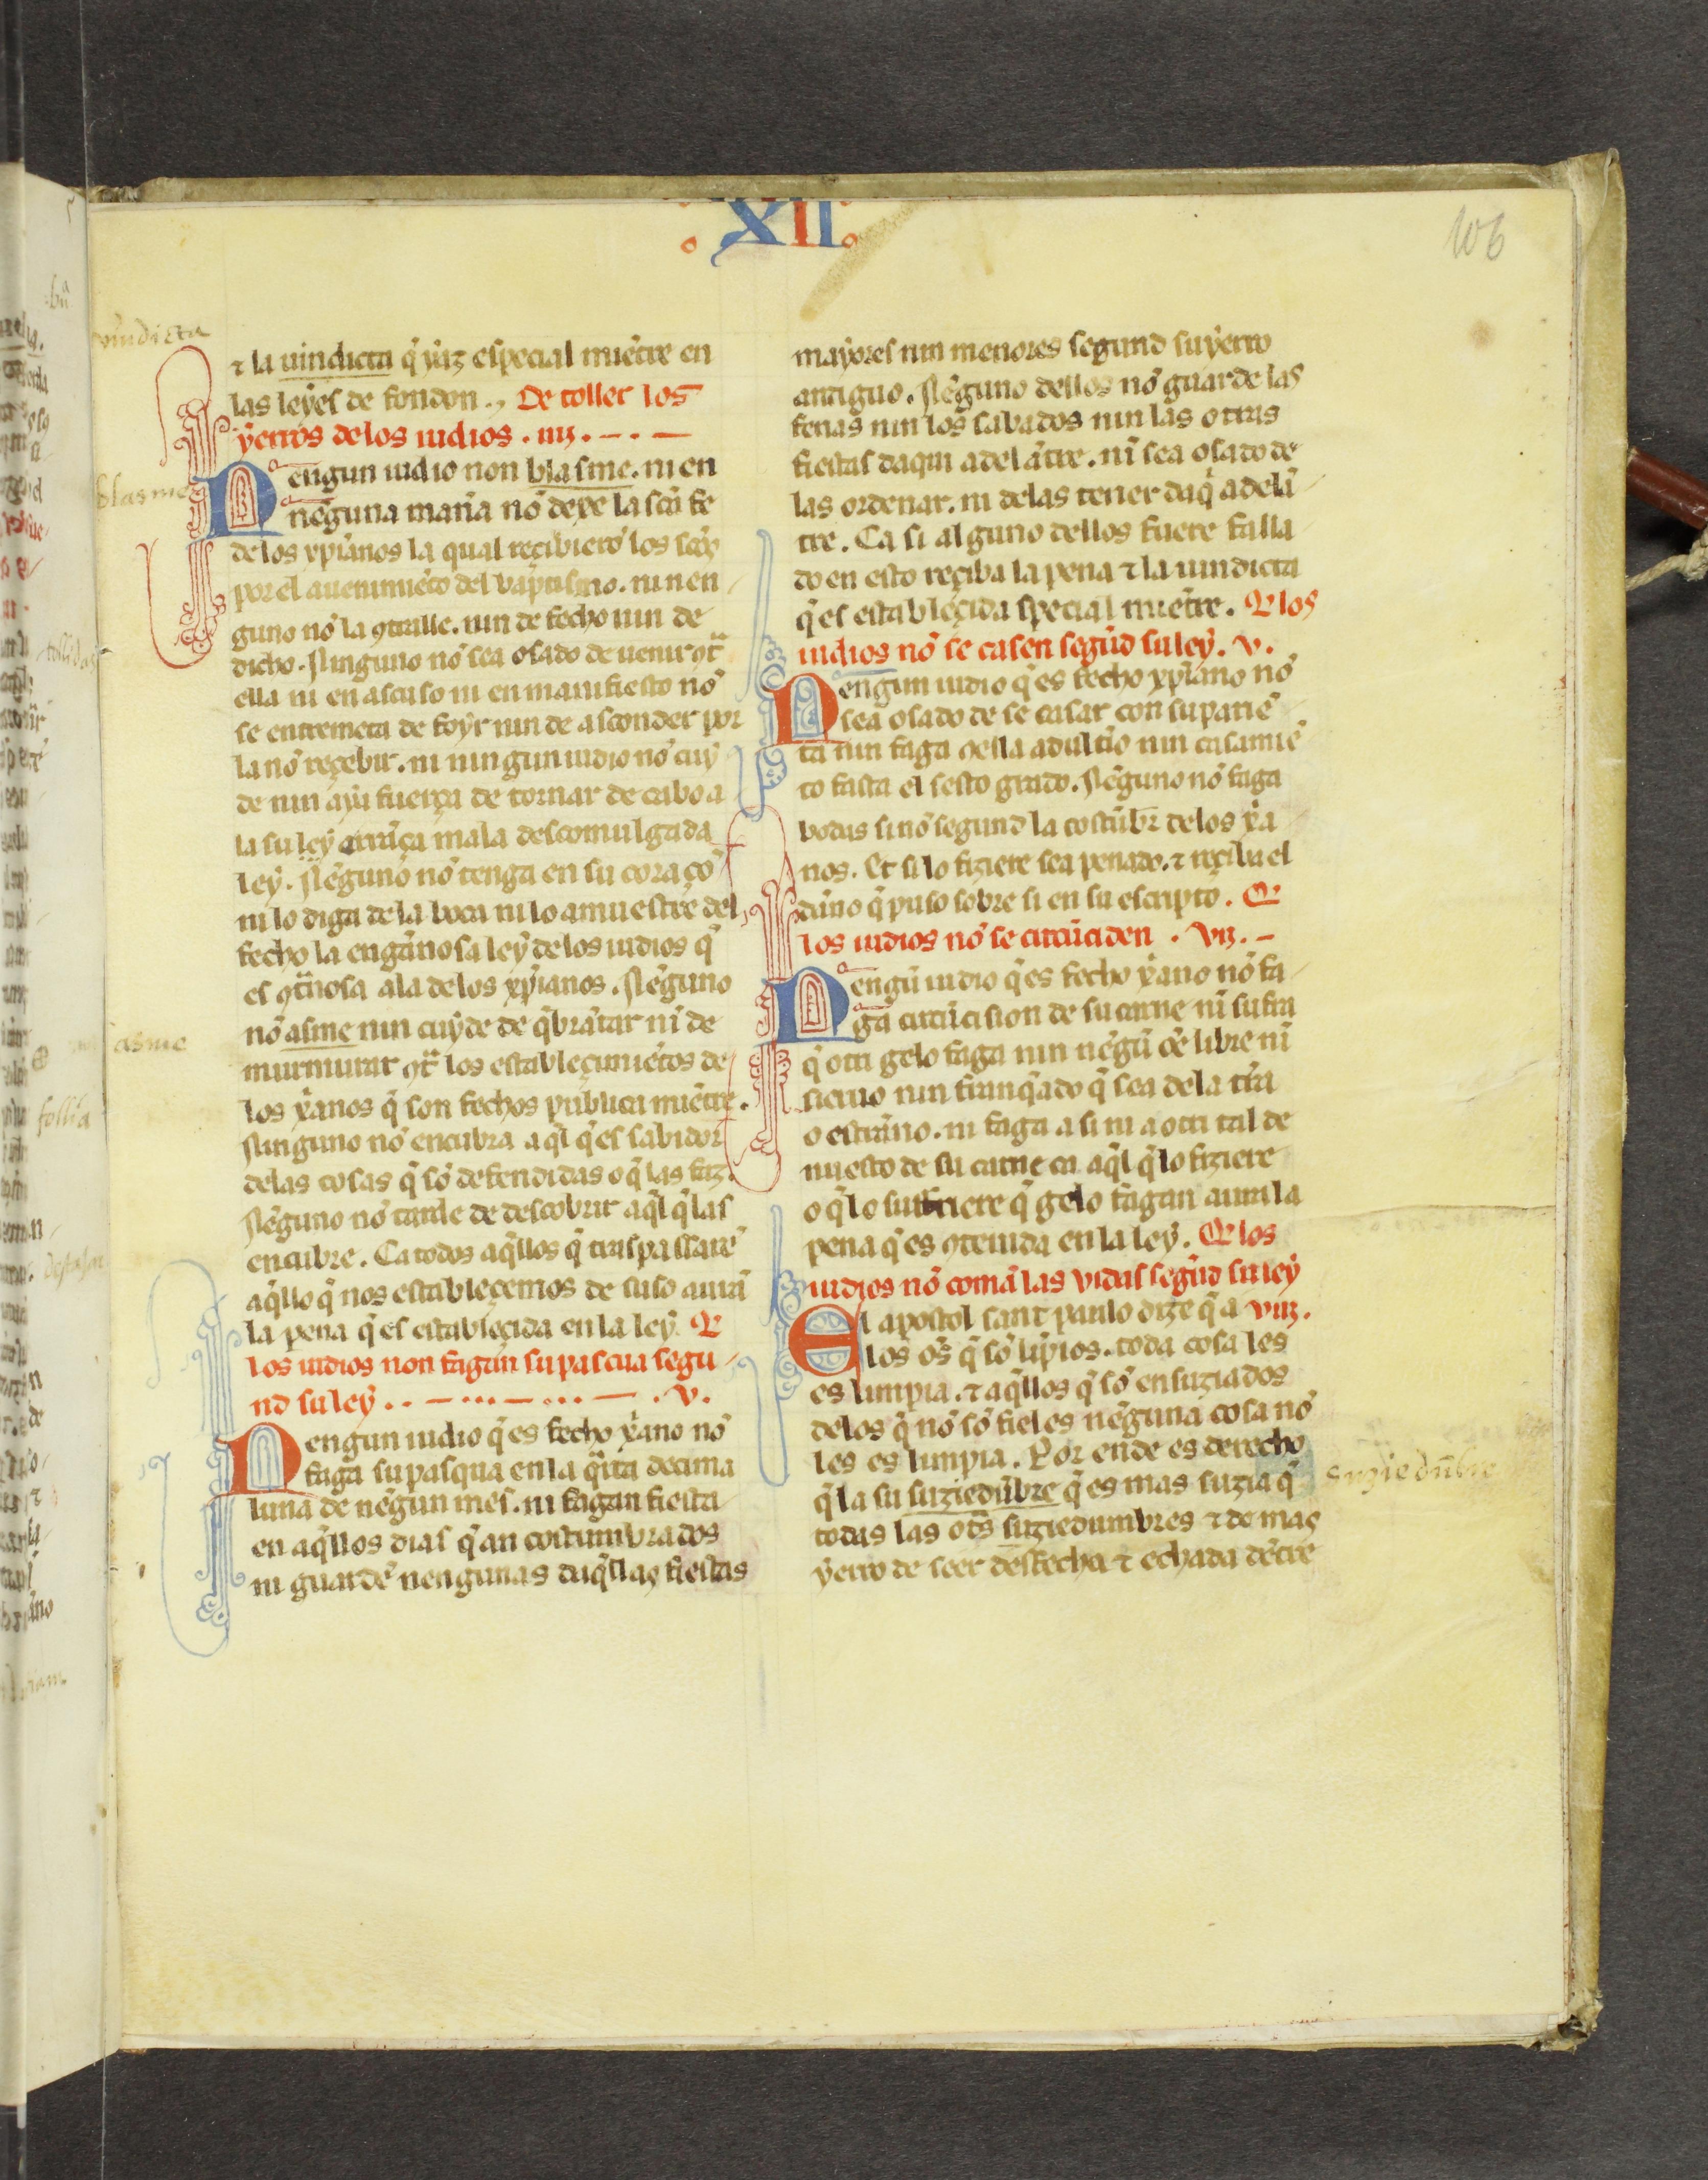 XII
106
uindicta
⁊ la uindicta q̃ yaz especial mientre en
las leyes de fondon., De toller los
yerros delos iudios . iiij . – . –
blasme
Nengun iudio non blasme. ni en
neguna maña nõ dexe la scã fe
delos xp̃ianos la qual reçibierõ los scõs
por el auenimiẽto del vaptismo. ni nen
guno nõ la cõtralle. nin de fecho nin de
dicho. Ninguno nõ sea osado de uenir cõtra
ella ni en ascuso ni en manifiesto nõ
se entremeta de foyr nin de asconder por
la nõ reçebir. ni ningun iudio nõ cuy
de nin aya fuerça de tornar de cabo a
la su ley mala descomulgada
ley. Neguno nõ tenga en su coraçõ
ni lo diga dela boca ni lo amuestre del
fecho la engãnosa ley delos iudios q̃
es cõtñosa ala delos xp̃ianos. Neguno
asme
nõ asme nin cuyde de q̃brãtar nĩ de
murmurar cõtra los estableçimiẽtos de
los xãnos q̃ son fechos publica miẽtre.
Ninguno nõ encubra aq̃l q̃ es sabidor
delas cosas q̃ sõ defendidas o q̃ las faz.
Neguno nõ tarde de descobrir aq̃l q̃ las
encubre. Ca todos aq̃llos q̃ traspassarẽ
aq̃llo q̃ nos estableçemos de suso aurã
la pena q̃ es estableçida en la ley. Q̃
los iudios non fagan su pascua segu
nd su ley . . – ... – ... – . v.
Nengun iudio q̃ es fecho xãno nõ
faga su pasqua en la q̃rta decima
luna de negun mes. ni fagan fiesta
en aq̃llos dias q̃ an costumbrados
ni guardẽ nengunas daq̃llas fiestas
mayores nin menores segund su yerro
antiguo. Neguno dellos nõ guarde las
ferias nin los sabados nin las otras
fiestas daqui adelãtre. nĩ sea osado de
las ordenar. ni delas tener daq̃ adelã
tre. Ca si alguno dellos fuere falla
do en esto reçiba la pena ⁊ la uindicta
q̃ es estableçida special miẽtre. Q̃ los
iudios nõ se casen segũd su ley. v.
Nengun iudio q̃ es fecho xp̃iano nõ
sea osado de se casar con su pariẽ
ta nin faga cõella adultĩo nin casamiẽ
to fasta el sesto grado. Neguno nõ faga
bodas si nõ segund la costũbr̃ delos xã
nos. Et si lo fiziere sea penado. ⁊ reçiba el
dãno q̃ puso sobre si en su escripto. Q̃
los iudios nõ se circũciden . vij. –
Nengũ iudio q̃ es fecho xãno nõ fa
ga circũcision de su carne nĩ sufra
q̃ otri gelo faga nin negũ õe libre nĩ
sieruo nin franq̃ado q̃ sea dela tr̃a
o estrãno. ni faga a si ni a otri tal de
nuesto de su carne ca aq̃l q̃ lo fiziere
o q̃ lo suffriere q̃ gelo fagan aura la
pena q̃ es cõtenida en la ley. Q̃ los
iudios nõ comã las vidas segũd su ley
El apostol sant paulo dize q̃ a viij.
los oẽs q̃ sõ lĩpios. toda cosa les
es limpia. ⁊ aq̃llos q̃ sõ ensuziados
delos q̃ nõ sõ fieles neguna cosa nõ
les es limpia. Por ende es derecho
suziedũbre
q̃ la su suziedũbre q̃ es mas suzia q̃
todas las otãs suziedumbres ⁊ de mas
yerro de seer desfecha ⁊ echada dẽtre